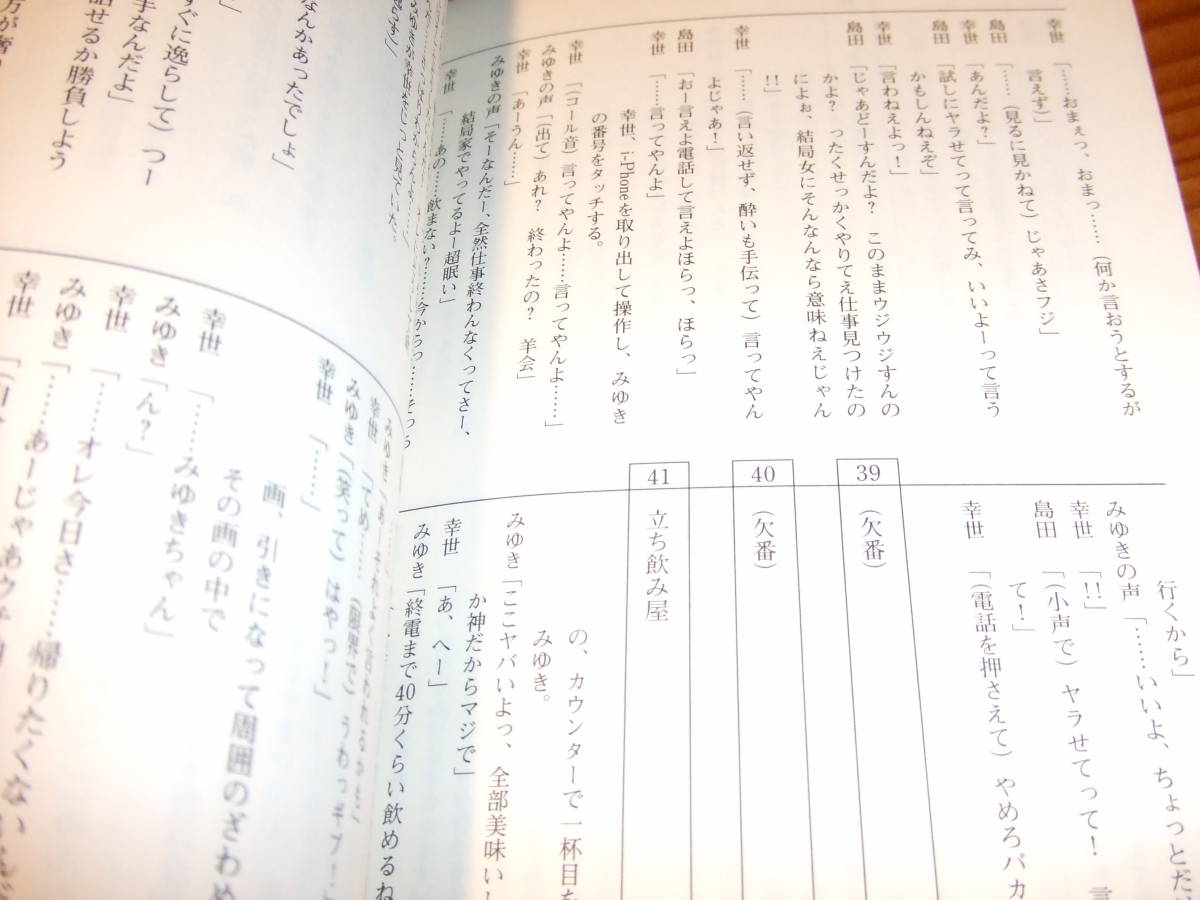 幸世 「……おまぇっ、おまっ……（何か言おうとするが
言えず）」
島田 「……（見るに見かねて）じゃあさフジ」
幸世 「あんだよ？」
島田 「試しにヤラせてって言ってみ、いいよーって言う
かもしんねえぞ」
幸世 「言わねえよっ！」
島田 「じゃあどーすんだよ？　このままウジウジすんの
かよ？　ったくせっかくやりてえ仕事見つけたの
によぉ、結局女にそんなんなら意味ねえじゃん
!!」
幸世 「……（言い返せず、酔いも手伝って）言ってやん
よじゃあ！」
島田 「おー言えよ電話して言えよほらっ、ほらっ」
幸世 「……言ってやんよ」
幸世、i-Phoneを取り出して操作し、みゆき
の番号をタッチする。
幸世 「（コール音）言ってやんよ……言ってやんよ……」
みゆきの声「（出て）あれ？　終わったの？　羊会」
幸世 「あーうん……」
みゆきの声「そーなんだー、全然仕事終わんなくってさー、
結局家でやってるよー超眠い」
幸世 「……あの……飲まない？……今からっ……そっち
行くから」
みゆきの声「……いいよ、ちょっとだ
幸世 「!!」
島田 「（小声で）ヤラせてって！　言
て！」
幸世 「（電話を押さえて）やめろバカ
39 （欠番）
40 （欠番）
41 立ち飲み屋
の、カウンターで一杯目を
みゆき。
みゆき「ここヤバいよっ、全部美味いし
か神だからマジで」
幸世 「あ、へー」
みゆき「終電まで40分くらい飲めるね
なんかあったでしょ」
すぐに逸らして）つー
手なんだよ」
話せるか勝負しよう
幸世 「てめ……（限界で）うわっギブ！」
みゆき「（笑って）はやっ！」
幸世 「……」
画、引きになって周囲のざわめ
その画の中で
幸世 「……みゆきちゃん」
みゆき「ん？」
幸世 「……オレ今日さ……帰りたくない
みゆき「……あーじゃあウチ
幸世